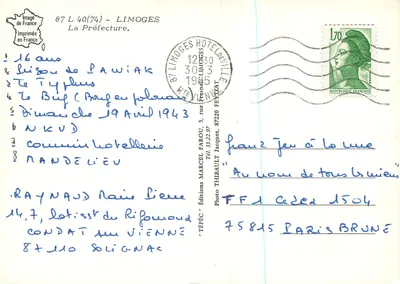 Image de France
Imprimée en France
87 L 40(74) - LIMOGES
La Préfecture.
87 LIMOGES HOTEL de VILLE
12 H 30
30-3
19
HTE VIENNE
1,70
REPUBLIQUE FRANCAISE
1 16 ans
2 Prison de PAWIAK
3 Le Typhus
4 Le Bug (Bug en polonais)
5 Dimanche 19 Avril 1943
6 NKVD
7 commis hotellerie
8 MANDELIEU
RAYNAUD Marie Pierre
14.7, lotisst du Rigomond
CONDAT sur VIENNE
87110 SOLIGNAC
"TÉPÉC" Éditions MARCEL PAROT, 5, rue
Photo THIBAULT Jacques, 87220 FEYTIAT
franz Jeu à la une
"Au nom de tous les miens"
TF1 Cedex 1504
75815 PARIS BRUNE